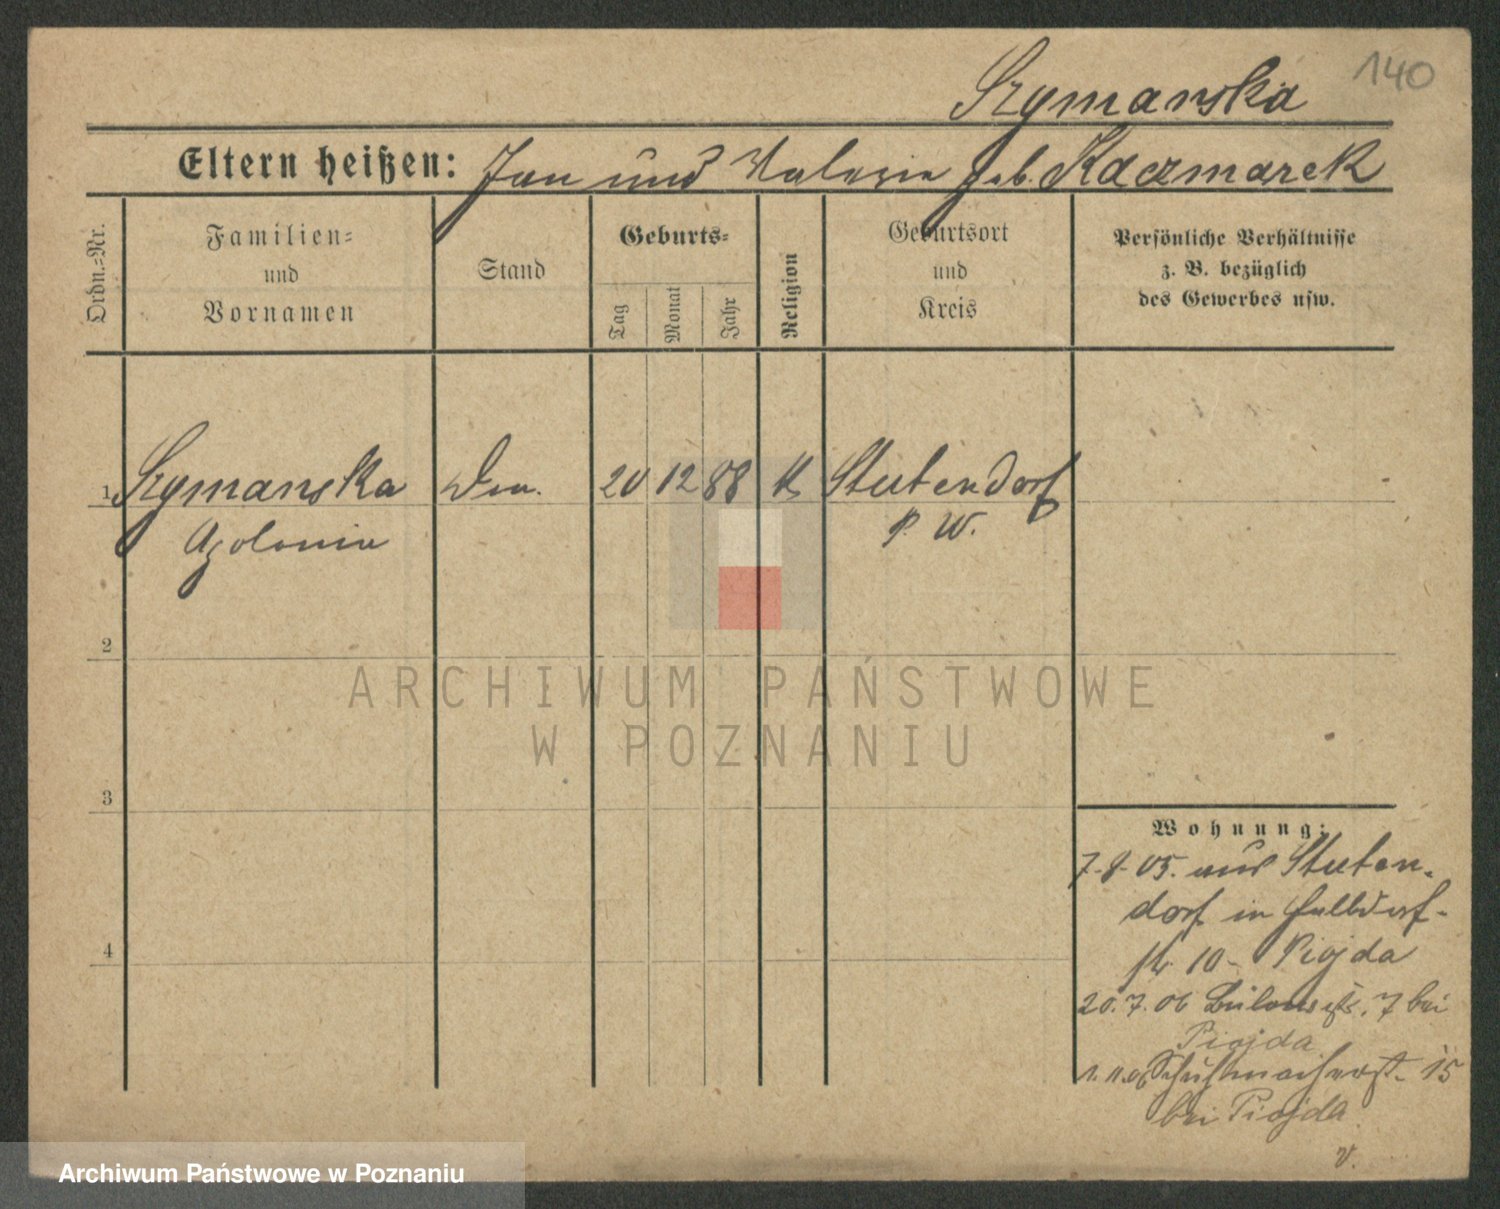 140
Szymanska
Eltern heißen: Jan und Valerie geb. Kaczmarek
Ordn.-Nr.
Familien-
und
Vornamen
Stand
Geburts-
Tag
Monat
Jahr
Religion
Geburtsort
und
Kreis
Persönliche Verhältnisse
z. B. bezüglich
des Gewerbes usw.
1 Szymanska 20 12 88 K Stutendorf
Apolonia P. W.
2
3
4
ARCHIWUM PAŃSTWOWE
W POZNANIU
Wohnung:
7.8.05. aus Stuten-
dorf in
10 - Piojda
20.7.06 Bülowstr. 7 bei
Piojda
1.11.06 Schuhmacherst. 15
bei Piojda
v.
Archiwum Państwowe w Poznaniu